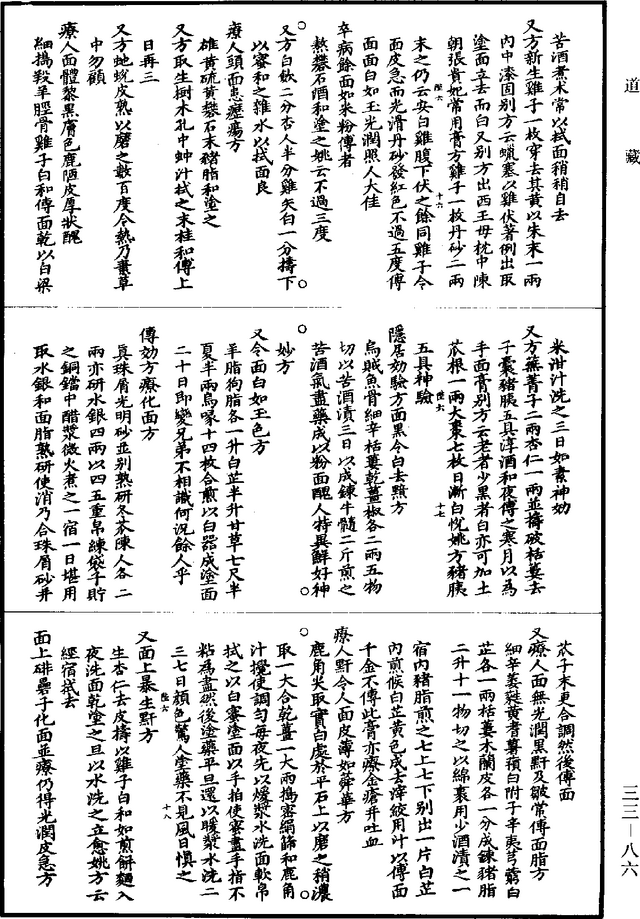 道藏
苦酒煮米常以拭面稍稍自去
又方新生雞子一枚穿去其黃以朱末一兩
內中漆固別方云蠟塞以雞伏著例出取
塗面立去而白又別方出西王母枕中陳
朝張貴妃常用膏方雞子一枚丹砂二兩
末之仍云安白雞腹下伏之餘同雞子令
面皮急而光滑丹砂發紅色不過五度傅
面面白如玉光潤照人大佳
卒病餘面如米粉傅者
熬礬石酒和塗之姚云不過三度
又方白歛二分杏人半分雞矢白一分擣下
以蜜和之雜水以拭面良
療人頭面患癧瘍方
雄黃硫黃礬石末豬脂和塗之
又方取生樹木孔中蚛汁拭之末桂和傅上
日再三
又方蛇蛻皮熟以磨之數百度令熱乃棄草
中勿顧
療人面體黎黑膚色麁陋皮厚狀醜
細擣羖羊脛骨雞子白和傅面乾以白梁
米泔汁洗之三日如素神効
又方蕪菁子二兩杏仁一兩並擣破栝蔞去
子囊豬胰五具淳酒和夜傅之寒月以為
手面膏別方云老者少黑者白亦可加土
苽根一兩大棗七枚日漸白悅姚方豬胰
五具神驗
隱居効驗方面黑令白去黯方
烏賊魚骨細辛栝蔞乾薑椒各二兩五物
切以苦酒漬三日以成鍊牛髓二斤煎之
苦酒氣盡藥成以粉面醜人特異鮮好神
妙方
又令面白如玉色方
羊脂狗脂各一升白芷半升甘草七尺半
夏半兩烏喙十四枚合煎以白器成塗面
二十日即變兄弟不相識何況餘人乎
傳効方療化面方
真珠屑光明砂並別熟研冬苽陳人各二
兩亦研水銀四兩以四五重帛練袋子貯
之銅鐺中醋漿微火煮之一宿一日堪用
取水銀和面脂熟研使消乃合珠屑砂并
苽子末更合調然後傅面
又療人面無光潤黑䵟及皺常傅面脂方
細辛萎蕤黃耆薯蕷白附子辛夷芎藭白
芷各一兩栝蔞木蘭皮各一分成鍊豬脂
二升十一物切之以綿裹用少酒漬之一
宿內豬脂煎之七上七下別出一片白芷
內煎候白芷黃色成去滓絞用汁以傅面
千金不傳此膏亦療金瘡并吐血
療人䵟令人面皮薄如蕣華方
鹿角尖取實白處於平石上以磨之稍濃
取一大合乾薑一大兩擣密絹篩和鹿角
汁攪使調勻每夜先以煖漿水洗面軟帛
拭之以白蜜塗面以手拍使蜜盡手指不
粘為盡然後塗藥平旦還以暖漿水洗二
三七日顏色驚人塗藥不見風日慎之
又面上暴生䵟方
生杏仁去皮擣以雞子白和如煎餅麵入
夜洗面乾塗之旦以水洗之立愈姚方云
經宿拭去
面上碎礨子化面並療仍得光潤皮急方
陛六
十六
陛六
十七
陛六
十八
三三—八六